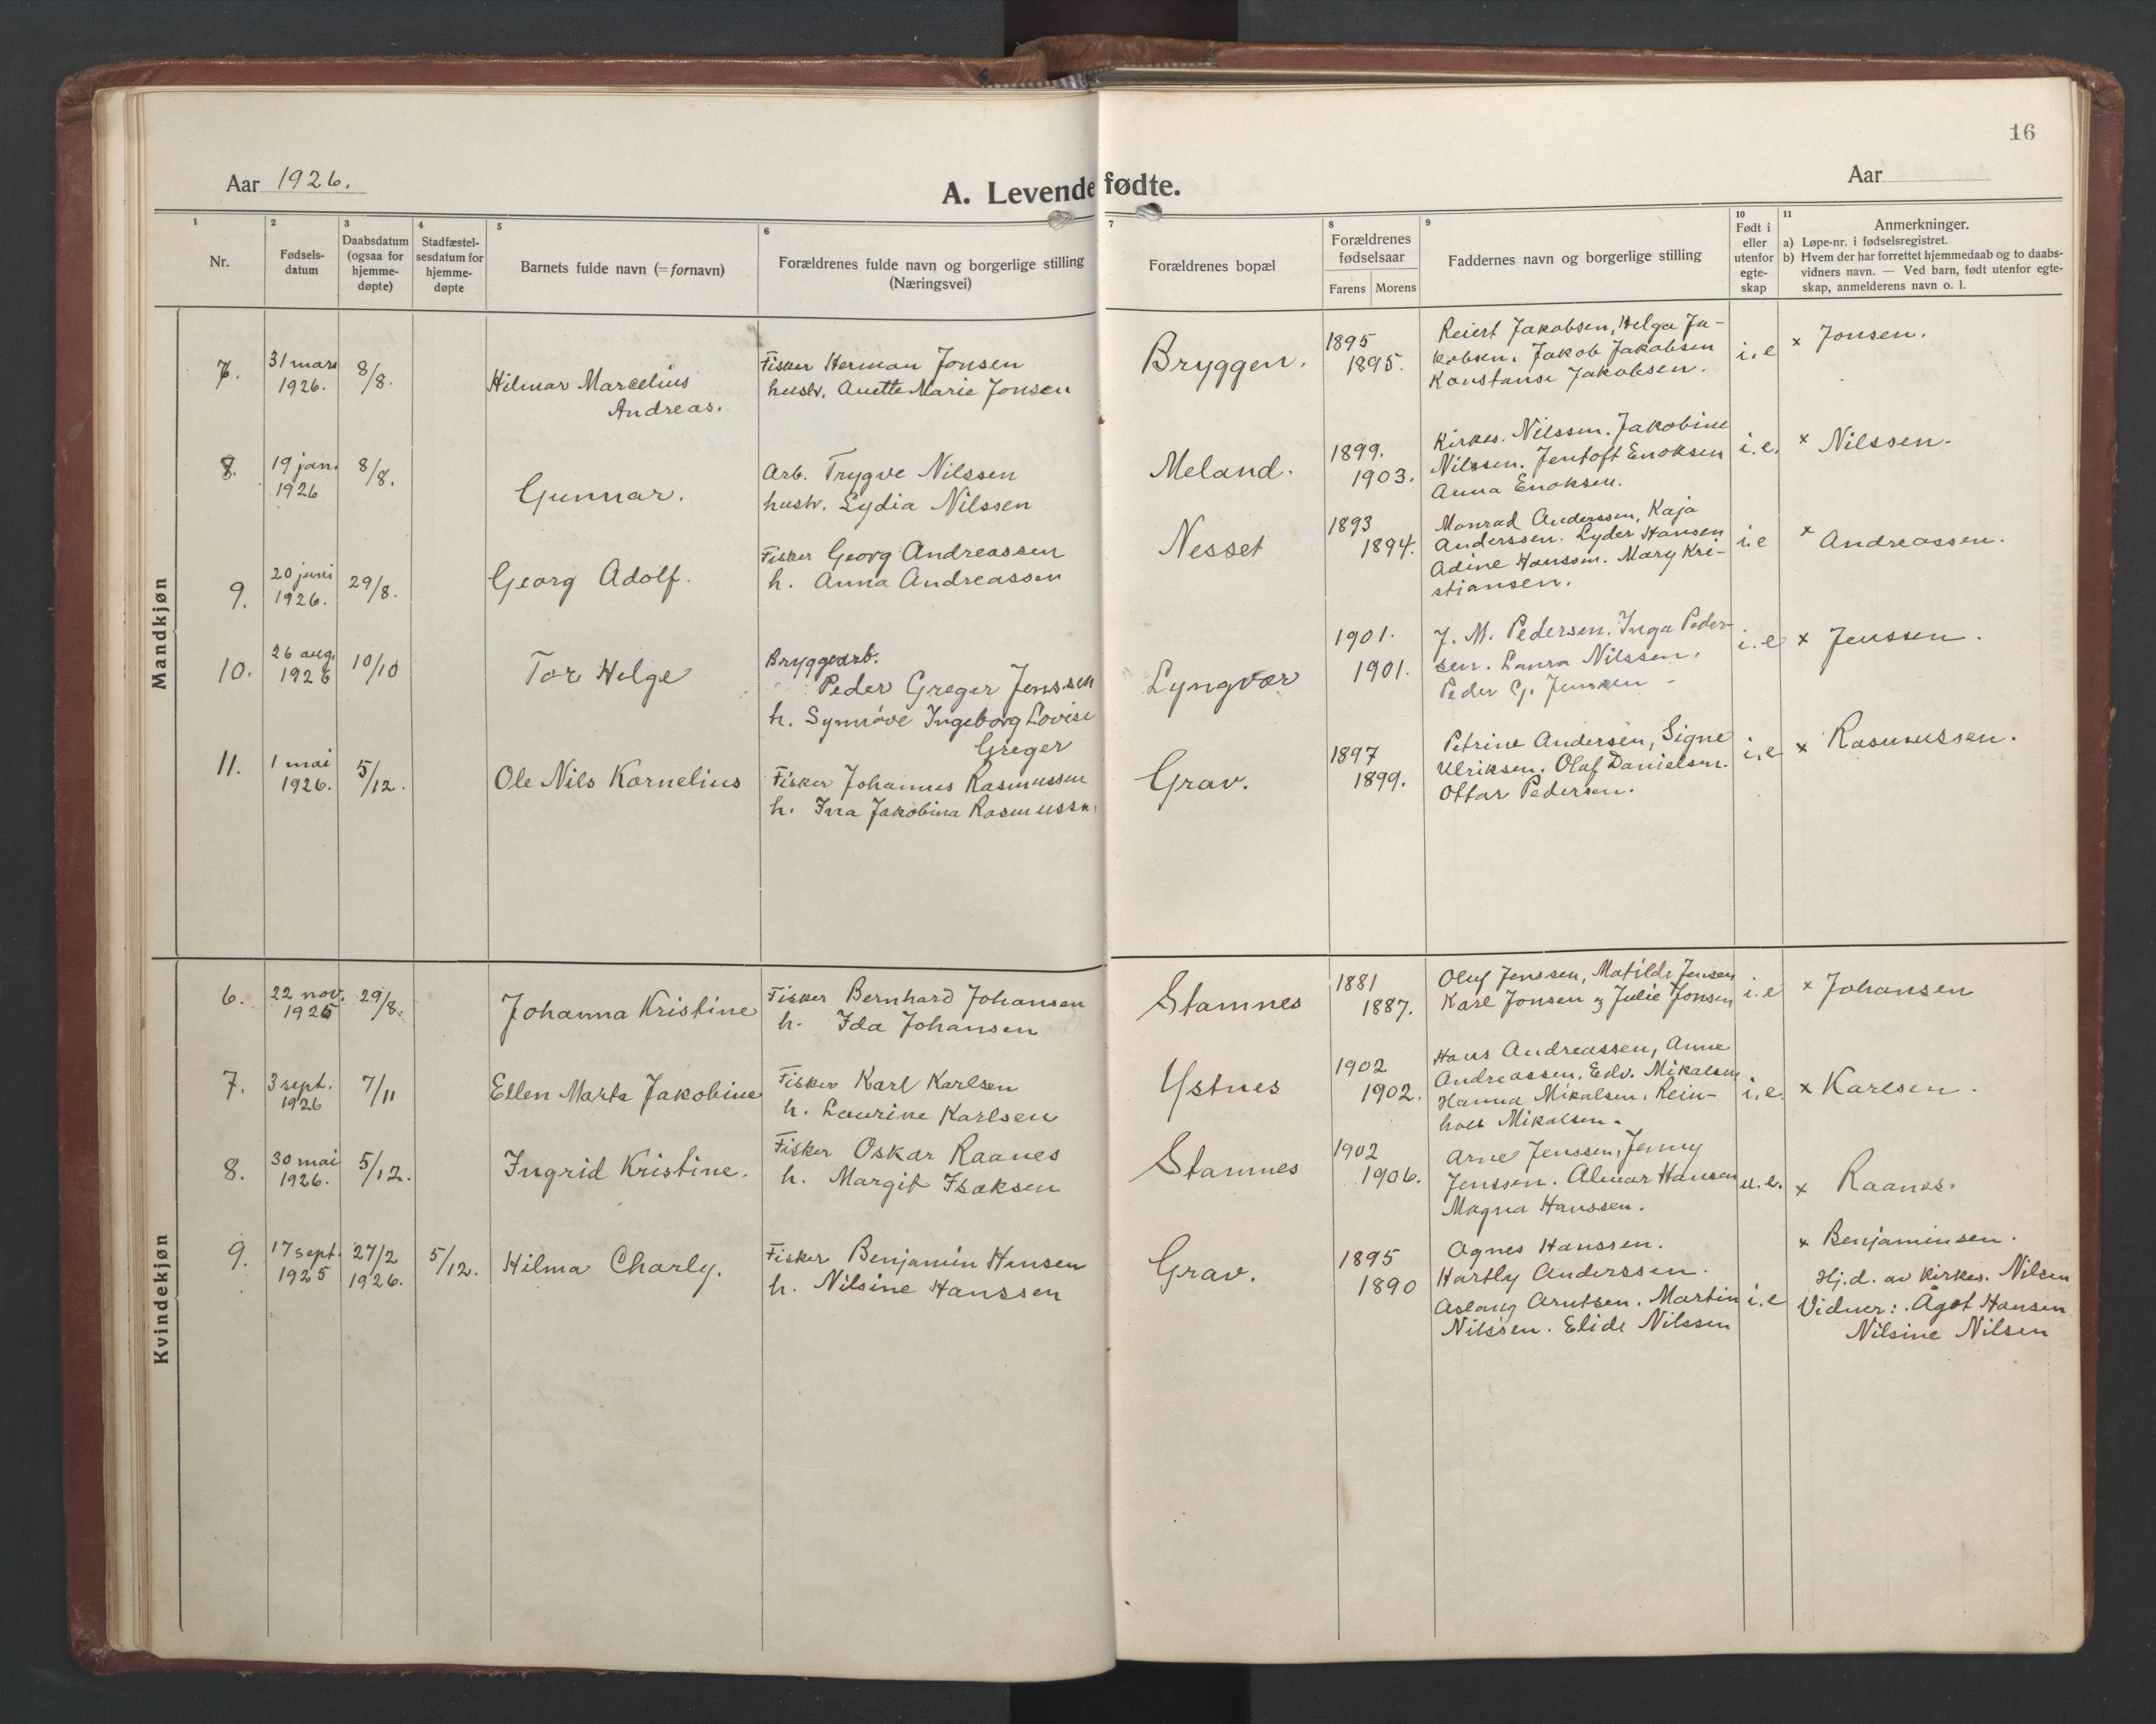 16
Aar 1926.
A. Levendefødte.
Aar
1 2 3 4 5 6 7 8 9 10 11
Nr.
Fødsels-
datum
Daabsdatum
(ogsaa for
hjemme-
døpte)
Stadfæstel-
sesdatum for
hjemme-
døpte
Barnets fulde navn (=fornavn)
Forældrenes fulde navn og borgerlige stilling
(Næringsvei)
Forældrenes bopæl
Forældrenes
fødselsaar
Farens Morens
Faddernes navn og borgerlige stilling
Født i
eller
utenfor
egte-
skap
Anmerkninger.
a) Løpe-nr. i fødselsregistret.
b) Hvem der har forrettet hjemmedaab og to daabs-
vidners navn. — Ved barn, født utenfor egte-
skap, anmelderens navn o. l.
Mandkjøn
7.
31 mars
1926.
8/8.
Hilmar Marcelius
Andreas.
Fisker Herman Jonsen
hustr. Anette Marie Jonsen
Bryggen.
1895
1895.
Reiert Jakobsen, Helga Ja-
kobsen. Jakob Jakobsen
Konstanse Jakobsen.
i. e
x Jonsen.
8.
19 jan.
1926
8/8.
Gunnar.
Arb. Trygve Nilssen
hustr. Lydia Nilssen
Meland.
1899.
1903.
Kirkes. Nilssen. Jakobine
Nilssen. Jentoft Enoksen
Anna Enoksen.
i. e.
x Nilssen.
9.
20 juni
1926.
29/8.
Georg Adolf.
Fisker Georg Andreassen
h. Anna Andreassen
Nesset
1893
1894.
Monrad Anderssen, Kaja
Anderssen. Lyder Hansen
Adine Hanssen. Mary Kri-
stiansen.
i. e
x Andreassen.
10.
26 aug.
1926
10/10
Tor Helge
Bryggearb.
Peder Greger Jenssen
h. Synnöve Ingeborg Lovise
Greger
Lyngvær
1901.
1901.
J. M. Pedersen. Inga Peder-
sen. Laura Nilssen.
Peder G. Jenssen -
i. e
x Jenssen.
11.
1 mai
1926.
5/12.
Ole Nils Kornelius
Fisker Johannes Rasmussen
h. Ina Jakobina Rasmussen
Grav.
1897
1899.
Petrine Andersen, Signe
Ulriksen. Olaf Danielsen.
Ottar Pedersen.
i. e
x Rasmussen.
Kvindekjøn
6.
22 nov.
1925
29/8.
Johanna Kristine
Fisker Bernhard Johansen
h. Ida Johansen
Stamnes
1881
1887.
Oluf Jenssen, Matilde Jensen
Karl Jonsen og Julie Jonsen
i. e
x Johansen
7.
3 sept.
1926
7/11
Ellen Marta Jakobine
Fisker Karl Karlsen
h. Laurine Karlsen
Ystnes
1902
1902.
Hans Andreassen, Anne
Andreassen, Edv. Mikalsen
Hanna Mikalsen. Rein-
holt Mikalsen.
i. e.
x Karlsen.
8.
30 mai
1926.
5/12.
Ingrid Kristine.
Fisker Oskar Raanes
h. Margit Isaksen
Stamnes
1902
1906.
Arne Jenssen, Jenny
Jenssen. Almar Hansen
Magna Hanssen.
u. e.
x Raanes.
9.
17 sept.
1925
27/2
1926.
5/12.
Hilma Charly.
Fisker Benjamin Hansen
h. Nilsine Hanssen
Grav.
1895
1890
Agnes Hanssen.
Hartly Anderssen.
Aslaug Arntsen. Martin
Nilssen. Elide Nilssen
i. e
x Benjaminsen.
Hj.d. av Kirkes. Nilsen
Vidner: Ågot Hansen
Nilsine Nilsen